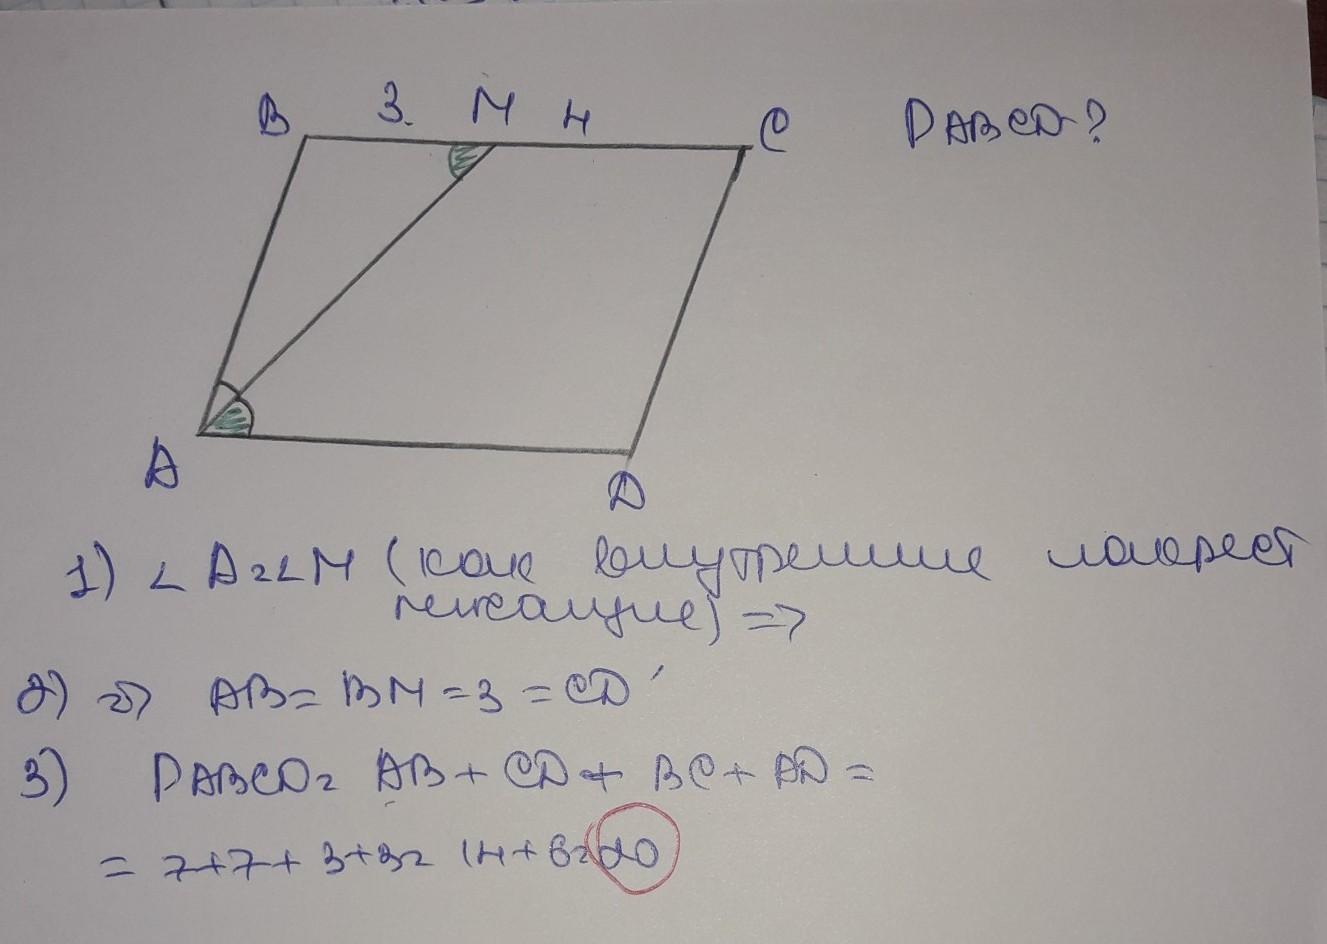 B 3. M 4 C PABCD?
A
D
1) ∠A=∠M (как внутренние накрест
лежащие) =>
2) => AB = BM = 3 = CD
3) PABCD = AB + CD + BC + AD =
= 7+7+3+3= 14+6=20